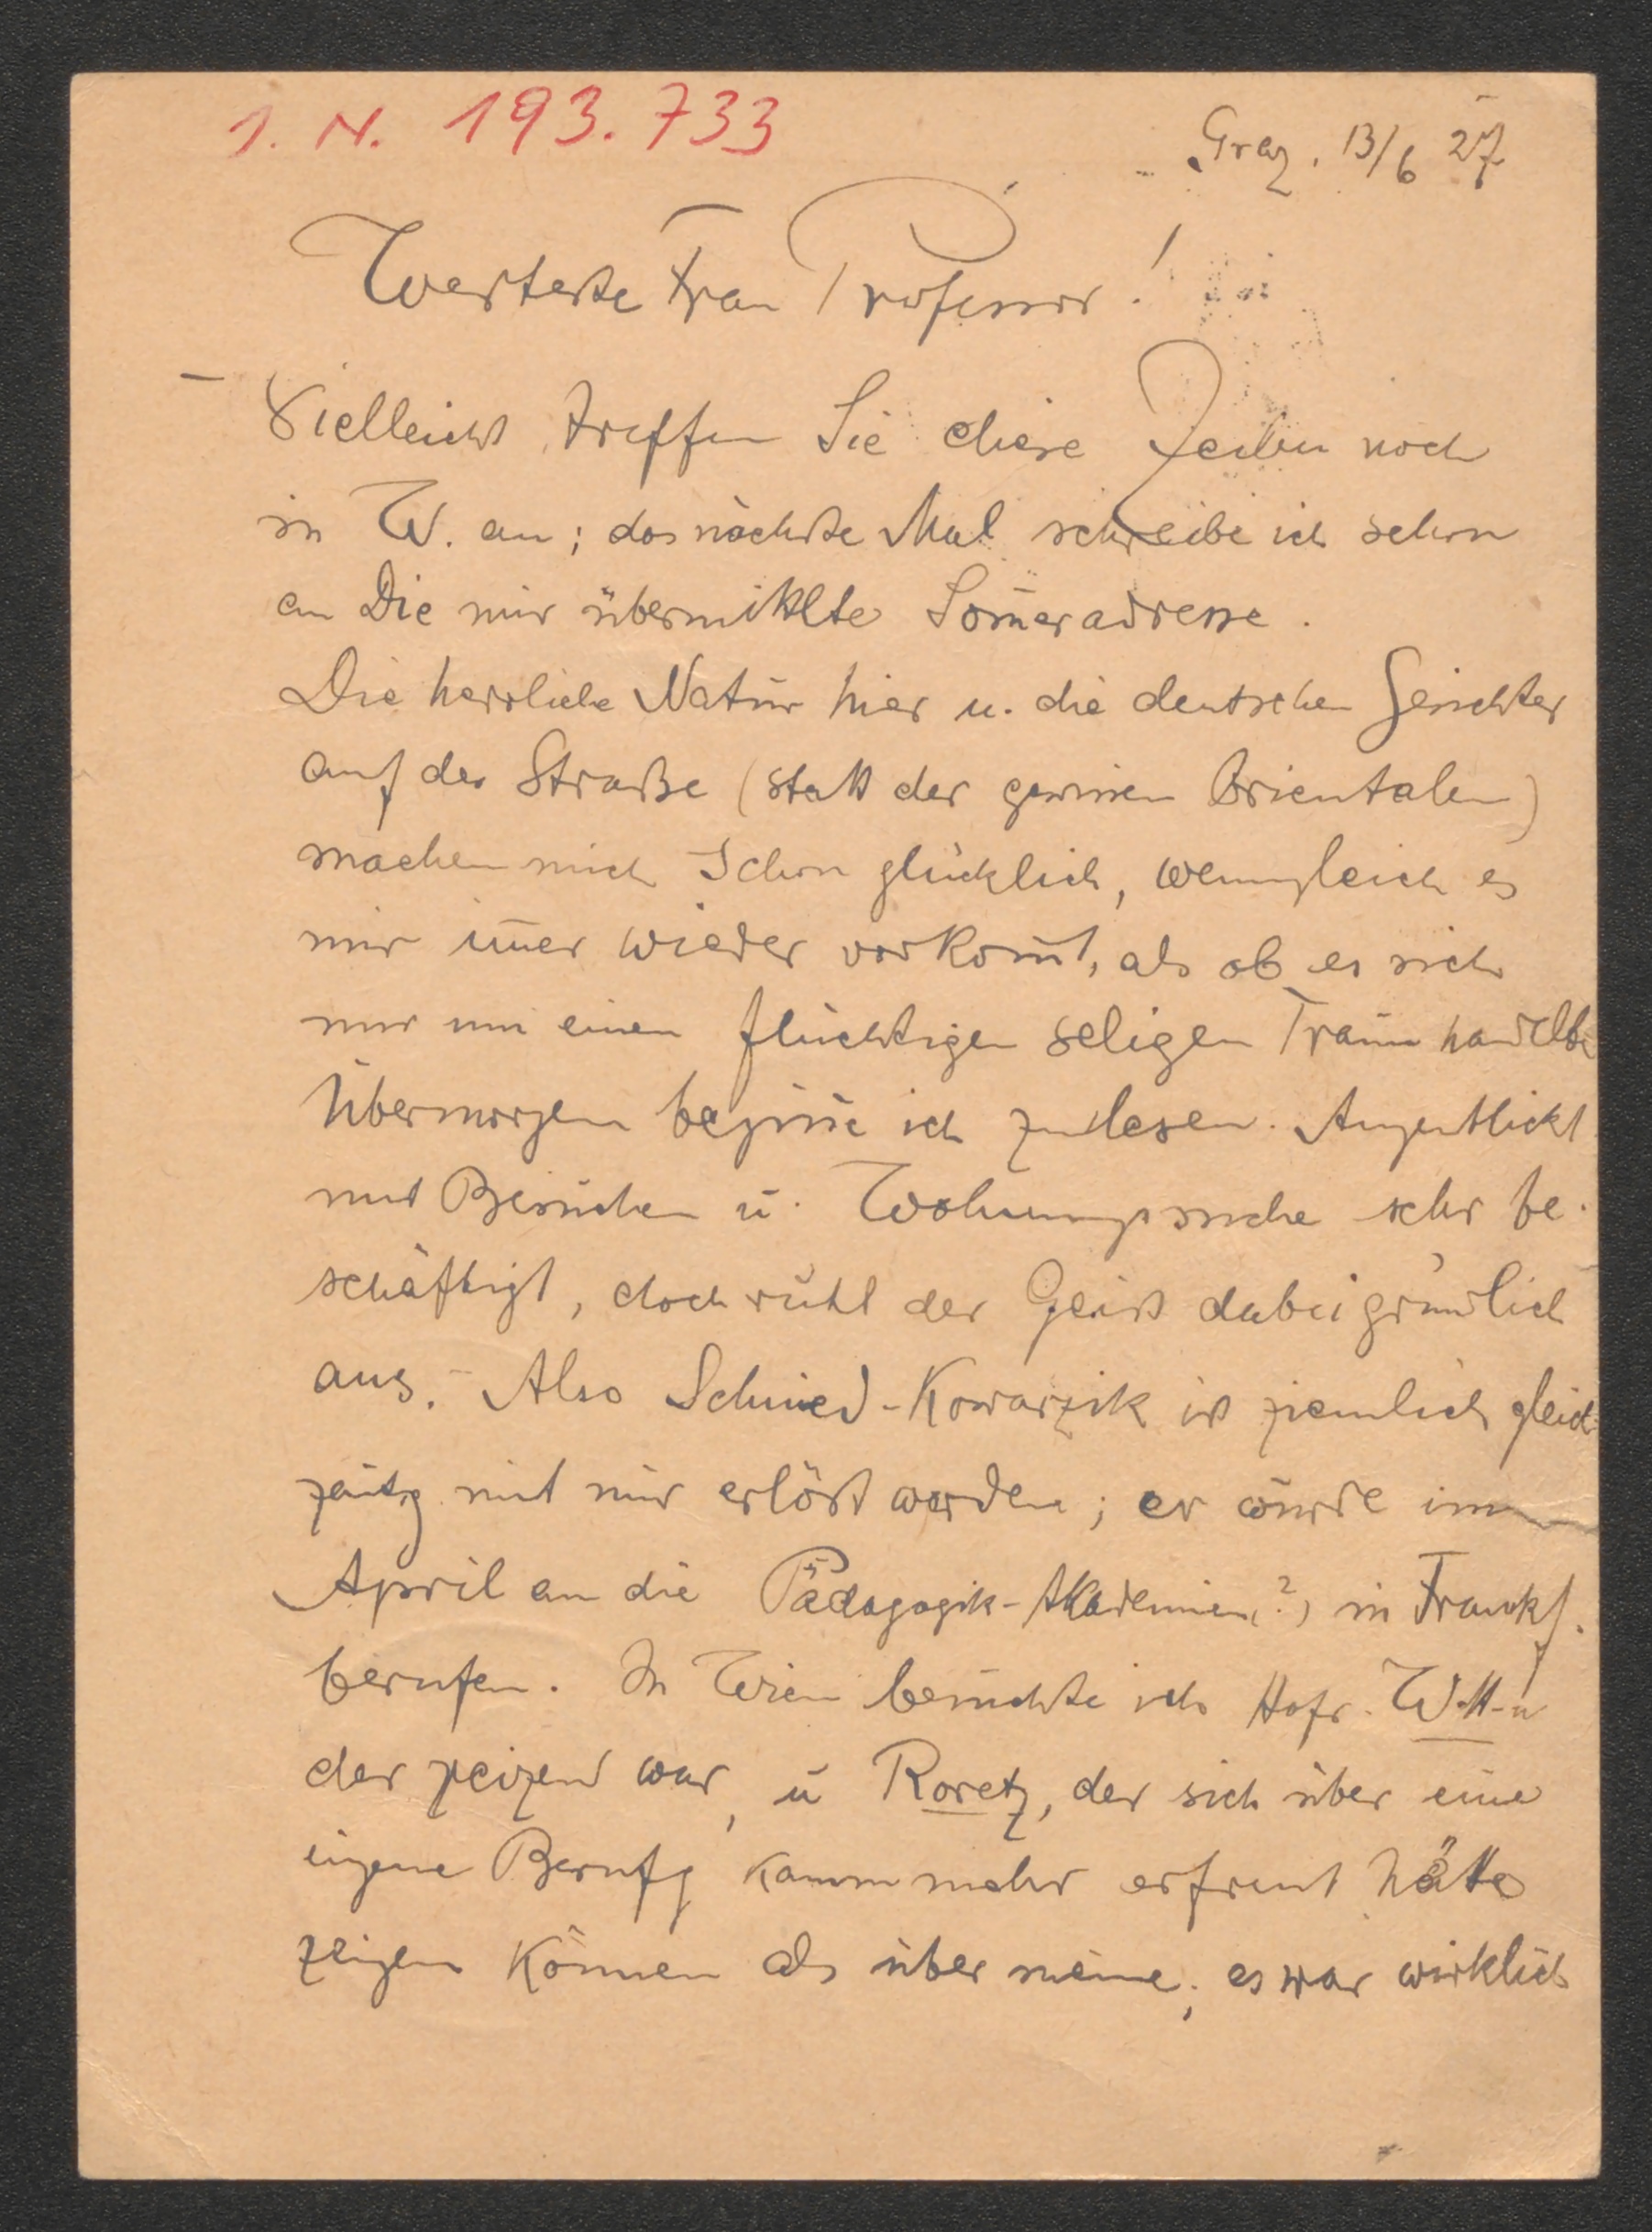 I. N. 193.733
Graz, 13/6 27
Werteste Frau Professor!
Vielleicht treffen Sie diese Zeilen noch
in W. an; das nächste Mal schreibe ich schon
an Die mir übermittelte Som̄eradresse.
Die herrliche Natur hier u. die deutschen Gesichter
auf der Straße (statt der gewissen Orientalen)
machen mich schon glücklich, wenngleich es
mir im̄er wieder vorkom̄t, als ob es sich
nur um einen flüchtigen seligen Traum handelte
Übermorgen begin̄e ich zu lesen. Augenblickl.
mit Besuchen u. Wohnungssuche sehr be-
schäftigt, doch ruht der Geist dabei gründlich
aus. - Also Schmied-Kowarzik ist ziemlich gleich-
zeitig mit mir erlöst worden; er wurde im
April an die Pädagogik-Akademie(?) in Frankf.
berufen. In Wien besuchte ich Hofr. W-tt-n
der reizend war, u Roretz, der sich über eine
eigene Berufg kaum mehr erfreut hätte
zeigen können als über meine; es war wirklich